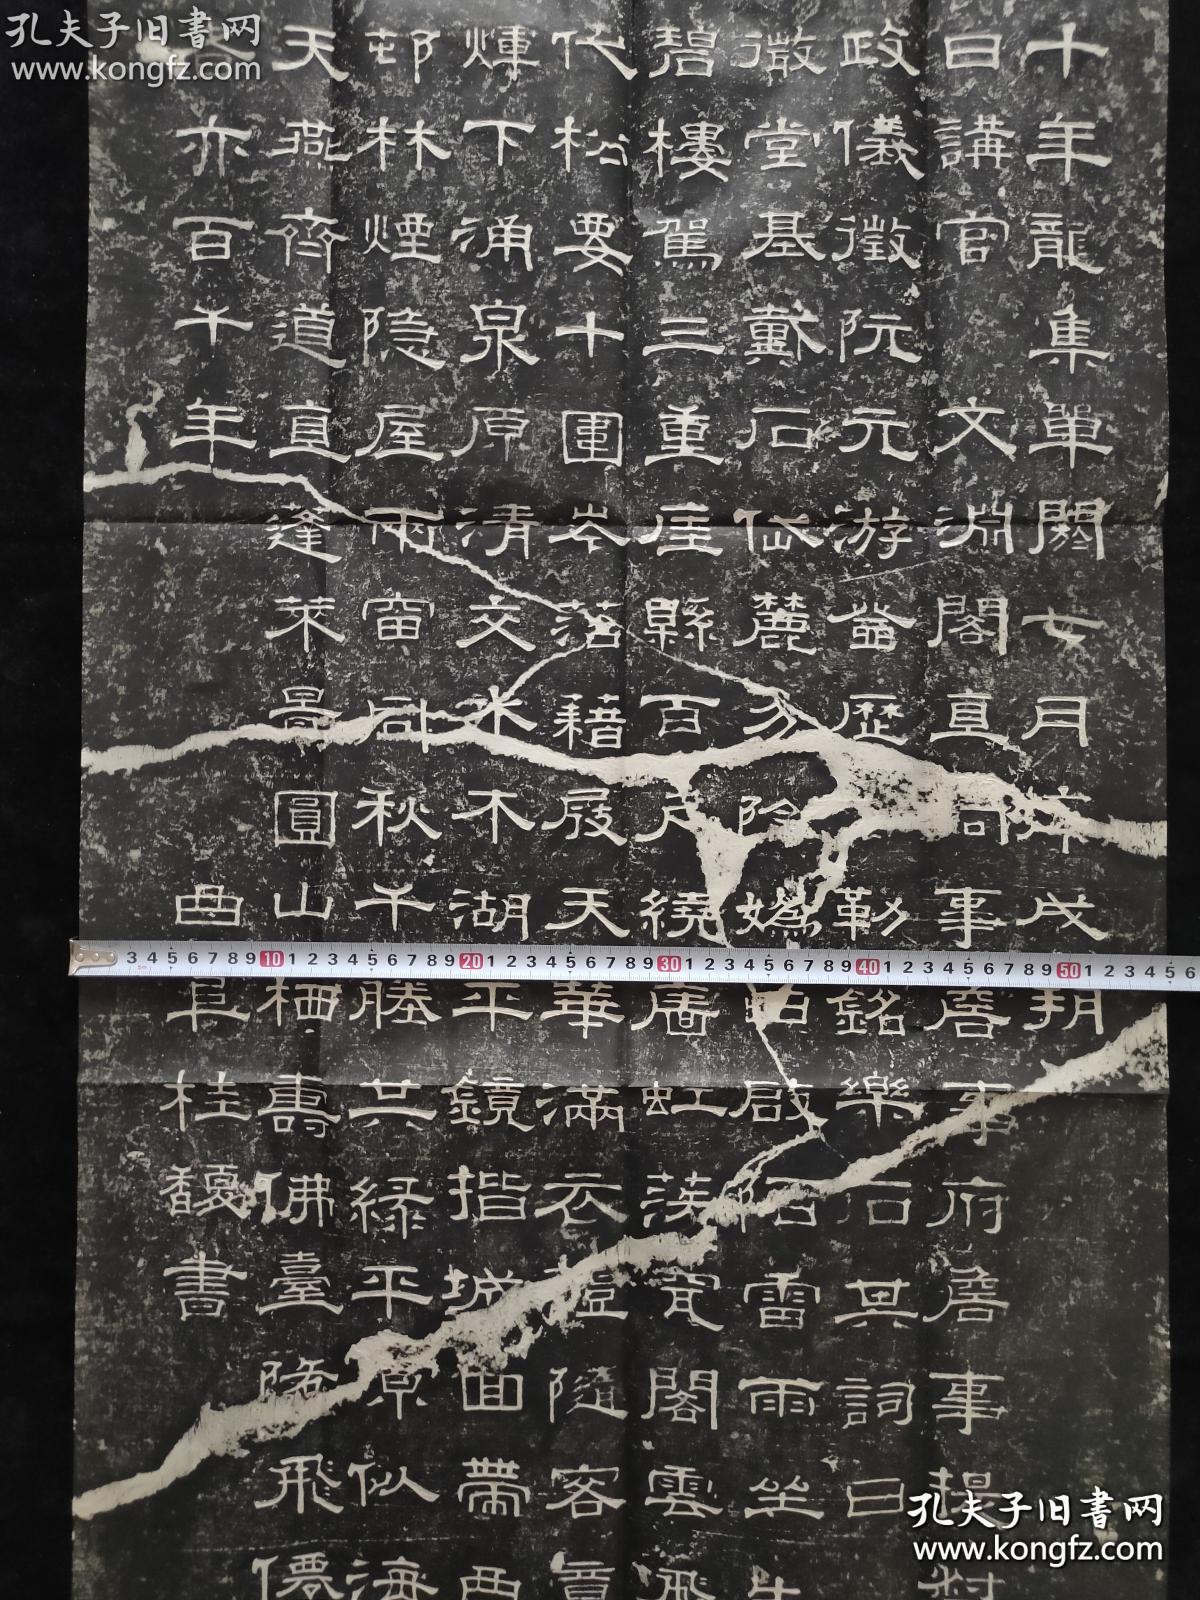 孔夫子旧書网
www.kongfz.com
十年龍集單閼女月成朔
日講官文淵閣直閣事詹事府詹事提
政儀徵阮元游登歷勒銘樂石其詞曰
徵堂基戴石岱麓分陰啟陌雷雨坐生
碧樓駕三重厓縣百尺繞虹蒺甍閣雲飛
代松要十圍岑落藉屐天華滿衣隨客
煇下涌泉原清交水木湖平鏡揩城面帶西
邨林煙隐屋雨窗風秋千勝共綠平原似海
天燕齊道直逢萊島圓山栖壽佛臺隆飛僊
亦百千年 曲阜桂馥書
3 4 5 6 7 8 9 10 1 2 3 4 5 6 7 8 9 20 1 2 3 4 5 6 7 8 9 30 1 2 3 4 5 6 7 8 9 40 1 2 3 4 5 6 7 8 9 50 1 2 3 4 5 6
孔夫子旧書网
www.kongfz.com